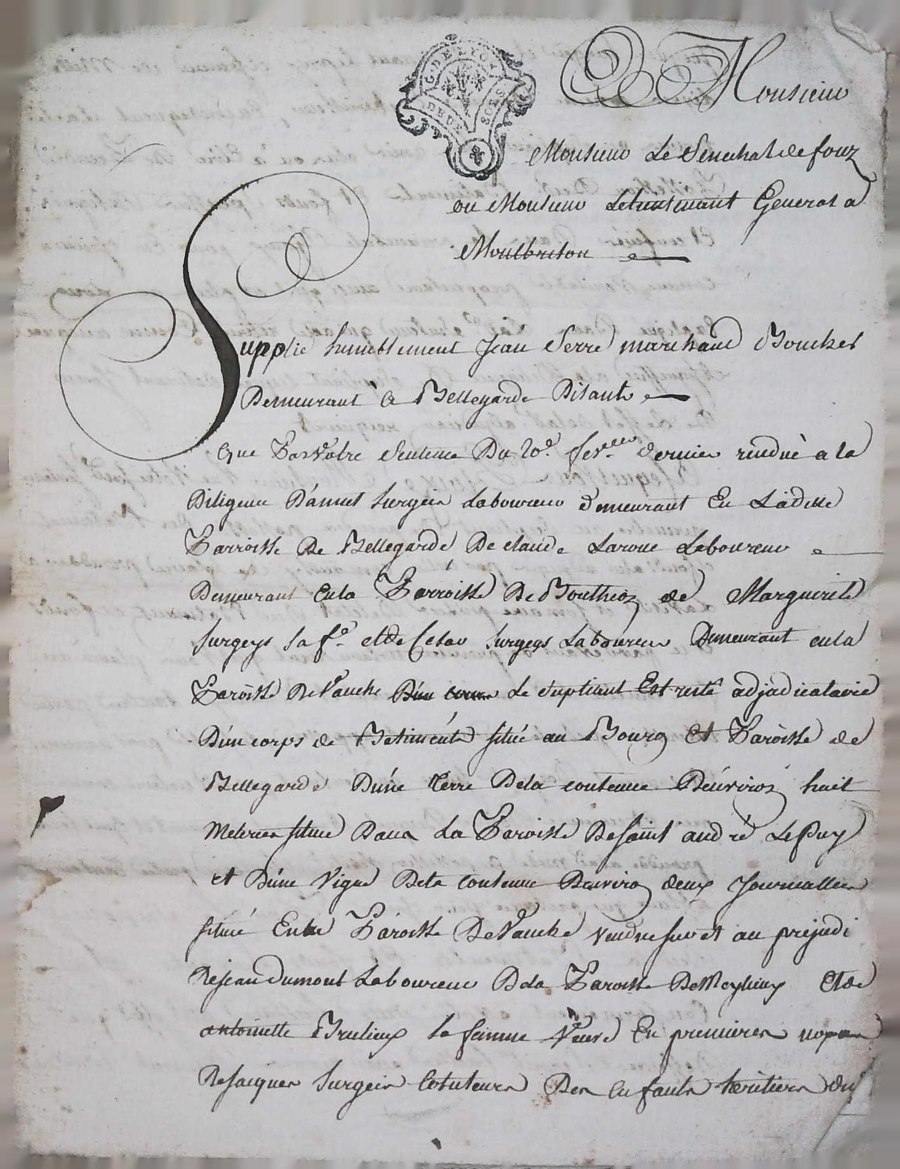 G. DE LYON
DEUX SOLS
Monsieur
Monsieur Le Senechal de forez
ou Monsieur Lelieutenant General a
Montbrison
Supplie humblement Jean Serre marchand Boucher
Demeurant à Bellegarde Disant
Que Par Votre Sentence Du 20e. fevrier dernier rendue a la
Diligence D'annet Surgein Laboureur demeurant En Ladette
Parroisse De Bellegarde De claude Laroue Laboureur
Demeurant En la Parroisse De Boutheoz de Marguerite
Surgeys Sa fe. et de Cesar Surgeys Laboureur Demeurant en la
Paroisse De Vauche Le Supliant Est resté adjudicataire
D'un corps de Batiments situé au Bourg Et Paroisse de
Bellegarde D'une terre De la contenue D'environ huit
Meterier située Dans La Paroisse De Saint andré Le Puy
et D'une Vigne De la contenue D'environ deux Journallée
située En la Paroisse De Vauche vendu sur et au prejudi
De Jean Dumont Laboureur De la Paroisse De Meylieux Et de
antoinette Brulieux Sa femme Veuve En premieres noces
De Jacques Surgein Cotuteurs Des Enfants heritiers du